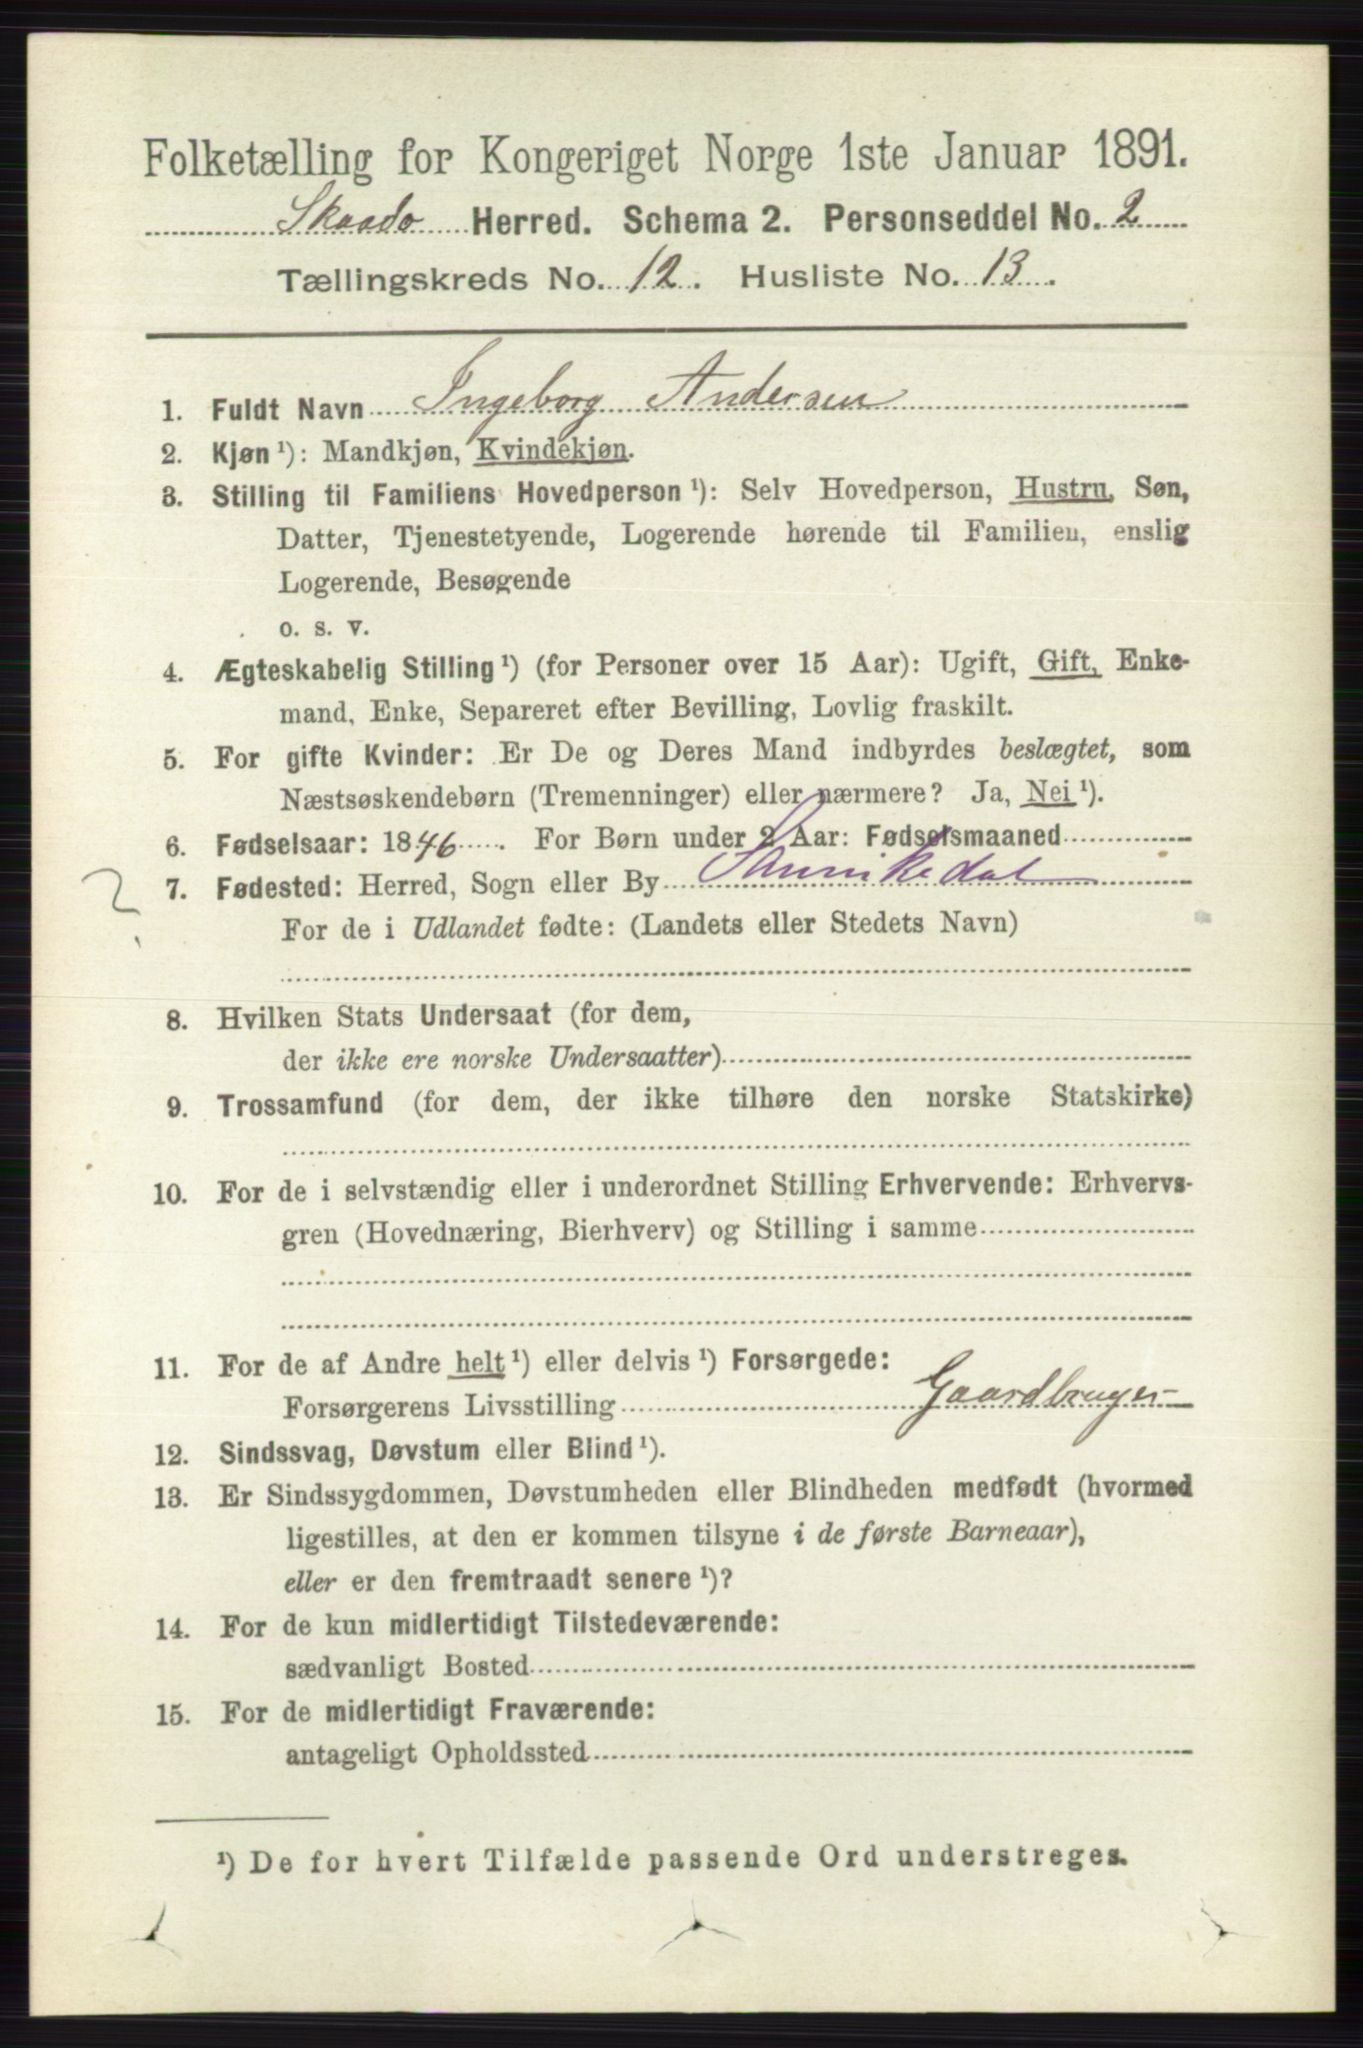 Folketælling for Kongeriget Norge 1ste Januar 1891.
Skaadø Herred. Schema 2. Personseddel No. 2
Tællingskreds No. 12. Husliste No. 13.
1. Fuldt Navn Ingeborg Andersen
2. Kjøn ¹): Mandkjøn, Kvindekjøn.
3. Stilling til Familiens Hovedperson ¹): Selv Hovedperson, Hustru, Søn,
Datter, Tjenestetyende, Logerende hørende til Familien, enslig
Logerende, Besøgende
o. s. v.
4. Ægteskabelig Stilling ¹) (for Personer over 15 Aar): Ugift, Gift, Enke-
mand, Enke, Separeret efter Bevilling, Lovlig fraskilt.
5. For gifte Kvinder: Er De og Deres Mand indbyrdes beslægtet, som
Næstsøskendebørn (Tremenninger) eller nærmere? Ja, Nei ¹).
6. Fødselsaar: 1846. For Børn under 2 Aar: Fødselsmaaned
? 7. Fødested: Herred, Sogn eller By Sannikedal
For de i Udlandet fødte: (Landets eller Stedets Navn)
8. Hvilken Stats Undersaat (for dem,
der ikke ere norske Undersaatter)
9. Trossamfund (for dem, der ikke tilhøre den norske Statskirke)
10. For de i selvstændig eller i underordnet Stilling Erhvervende: Erhvervs-
gren (Hovednæring, Bierhverv) og Stilling i samme
11. For de af Andre helt ¹) eller delvis ¹) Forsørgede:
Forsørgerens Livsstilling Gaardbruger
12. Sindssvag, Døvstum eller Blind ¹).
13. Er Sindssygdommen, Døvstumheden eller Blindheden medfødt (hvormed
ligestilles, at den er kommen tilsyne i de første Barneaar),
eller er den fremtraadt senere ¹)?
14. For de kun midlertidigt Tilstedeværende:
sædvanligt Bosted
15. For de midlertidigt Fraværende:
antageligt Opholdssted
¹) De for hvert Tilfælde passende Ord understreges.